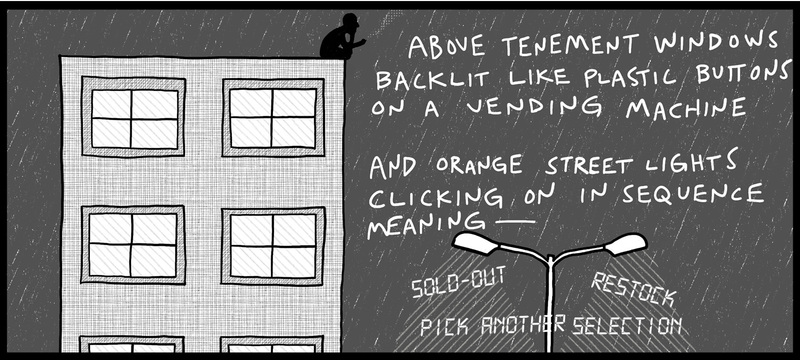 ABOVE TENEMENT WINDOWS
BACKLIT LIKE PLASTIC BUTTONS
ON A VENDING MACHINE
AND ORANGE STREET LIGHTS
CLICKING ON IN SEQUENCE
MEANING —
SOLD-OUT
RESTOCK
PICK ANOTHER SELECTION